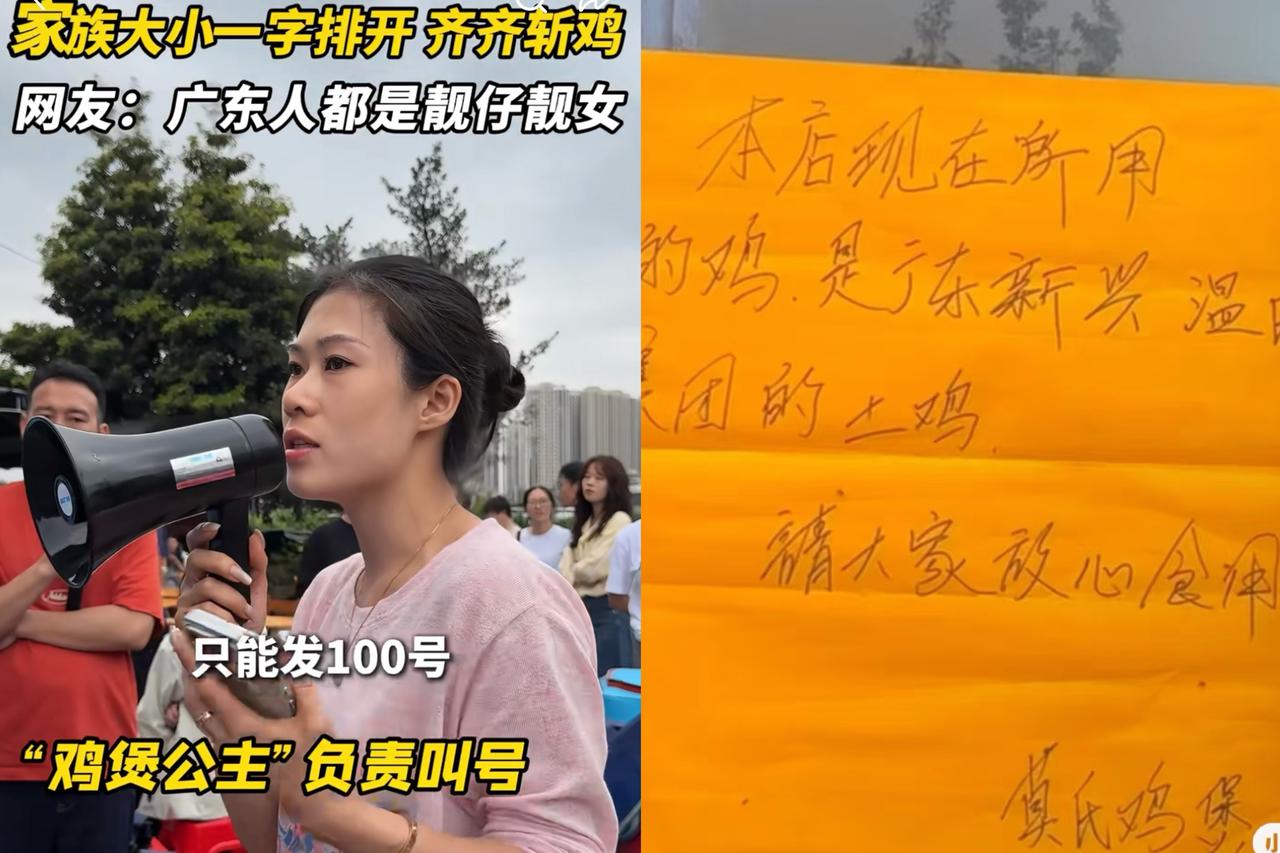 家族大小一字排开 齐齐斩鸡
网友：广东人都是靓仔靓女
只能发100号
“鸡煲公主”负责叫号
本店现在所用
的鸡.是广东新兴温
集团的土鸡.
請大家放心食用
莫氏鸡煲